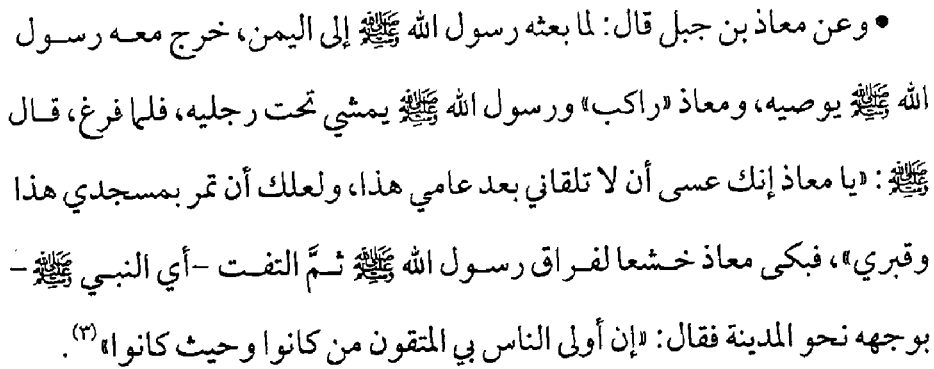 • وعن معاذ بن جبل قال: لما بعثه رسول الله ﷺ إلى اليمن، خرج معه رسول
الله ﷺ يوصيه، ومعاذ «راكب» ورسول الله ﷺ يمشي تحت رجليه، فلما فرغ، قال
ﷺ: «يا معاذ إنك عسى أن لا تلقاني بعد عامي هذا، ولعلك أن تمر بمسجدي هذا
وقبري»، فبكى معاذ خشعا لفراق رسول الله ﷺ ثمَّ التفت -أي النبي ﷺ-
بوجهه نحو المدينة فقال: «إن أولى الناس بي المتقون من كانوا وحيث كانوا»(٣).